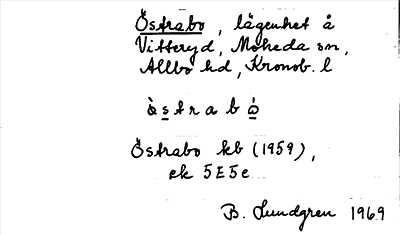 Östrabo, lägenhet å
Vitteryd, Moheda sn,
Allbo hd, Kronob. l
östrabo
Östrabo kb (1959),
ek 5E5e
B. Lundgren 1969